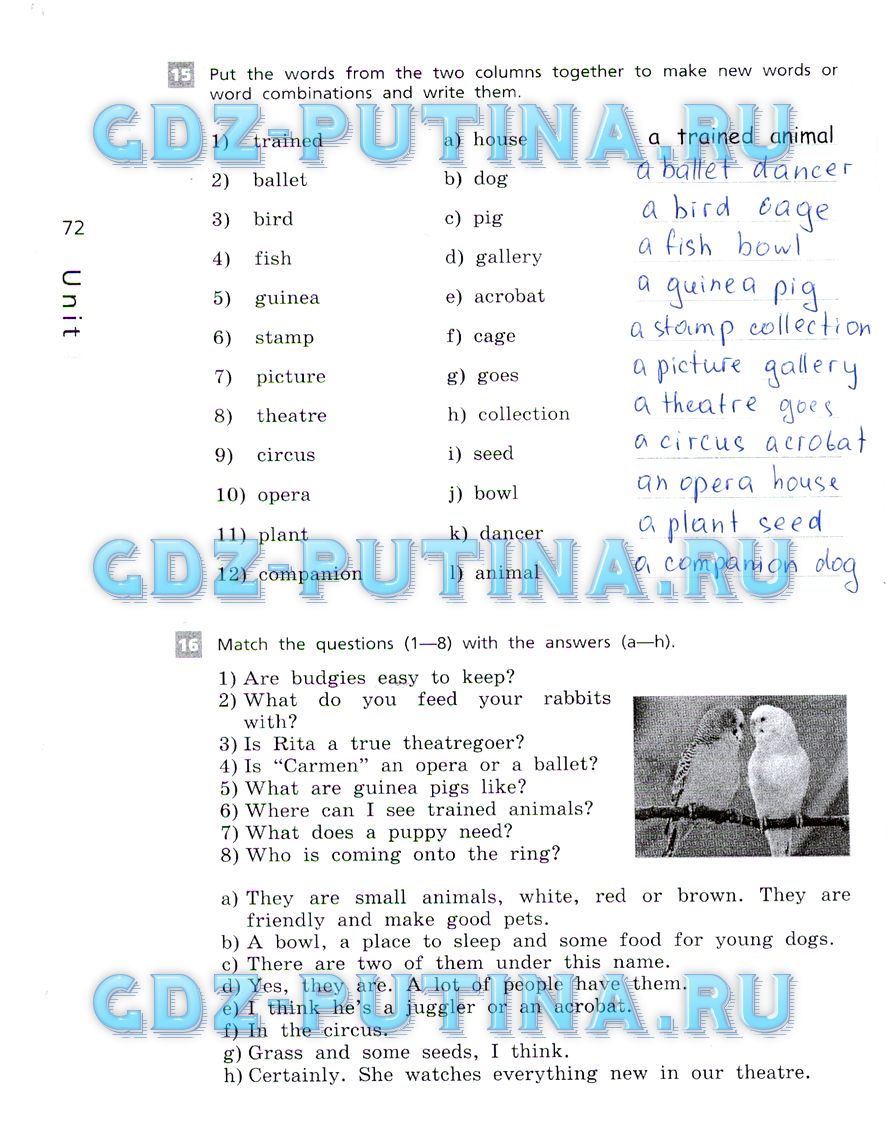 15 Put the words from the two columns together to make new words or
word combinations and write them.
GDZ-PUTINA.RU
1) trained a) house a trained animal
2) ballet b) dog a ballet dancer
3) bird c) pig a bird cage
72
4) fish d) gallery a fish bowl
Unit
5) guinea e) acrobat a guinea pig
6) stamp f) cage a stamp collection
7) picture g) goes a picture gallery
8) theatre h) collection a theatre goes
9) circus i) seed a circus acrobat
10) opera j) bowl an opera house
11) plant k) dancer a plant seed
GDZ-PUTINA.RU
12) companion l) animal a companion dog
16 Match the questions (1—8) with the answers (a—h).
1) Are budgies easy to keep?
2) What do you feed your rabbits
with?
3) Is Rita a true theatregoer?
4) Is “Carmen” an opera or a ballet?
5) What are guinea pigs like?
6) Where can I see trained animals?
7) What does a puppy need?
8) Who is coming onto the ring?
a) They are small animals, white, red or brown. They are
friendly and make good pets.
b) A bowl, a place to sleep and some food for young dogs.
c) There are two of them under this name.
d) Yes, they are. A lot of people have them.
GDZ-PUTINA.RU
e) I think he's a juggler or an acrobat.
f) In the circus.
g) Grass and some seeds, I think.
h) Certainly. She watches everything new in our theatre.